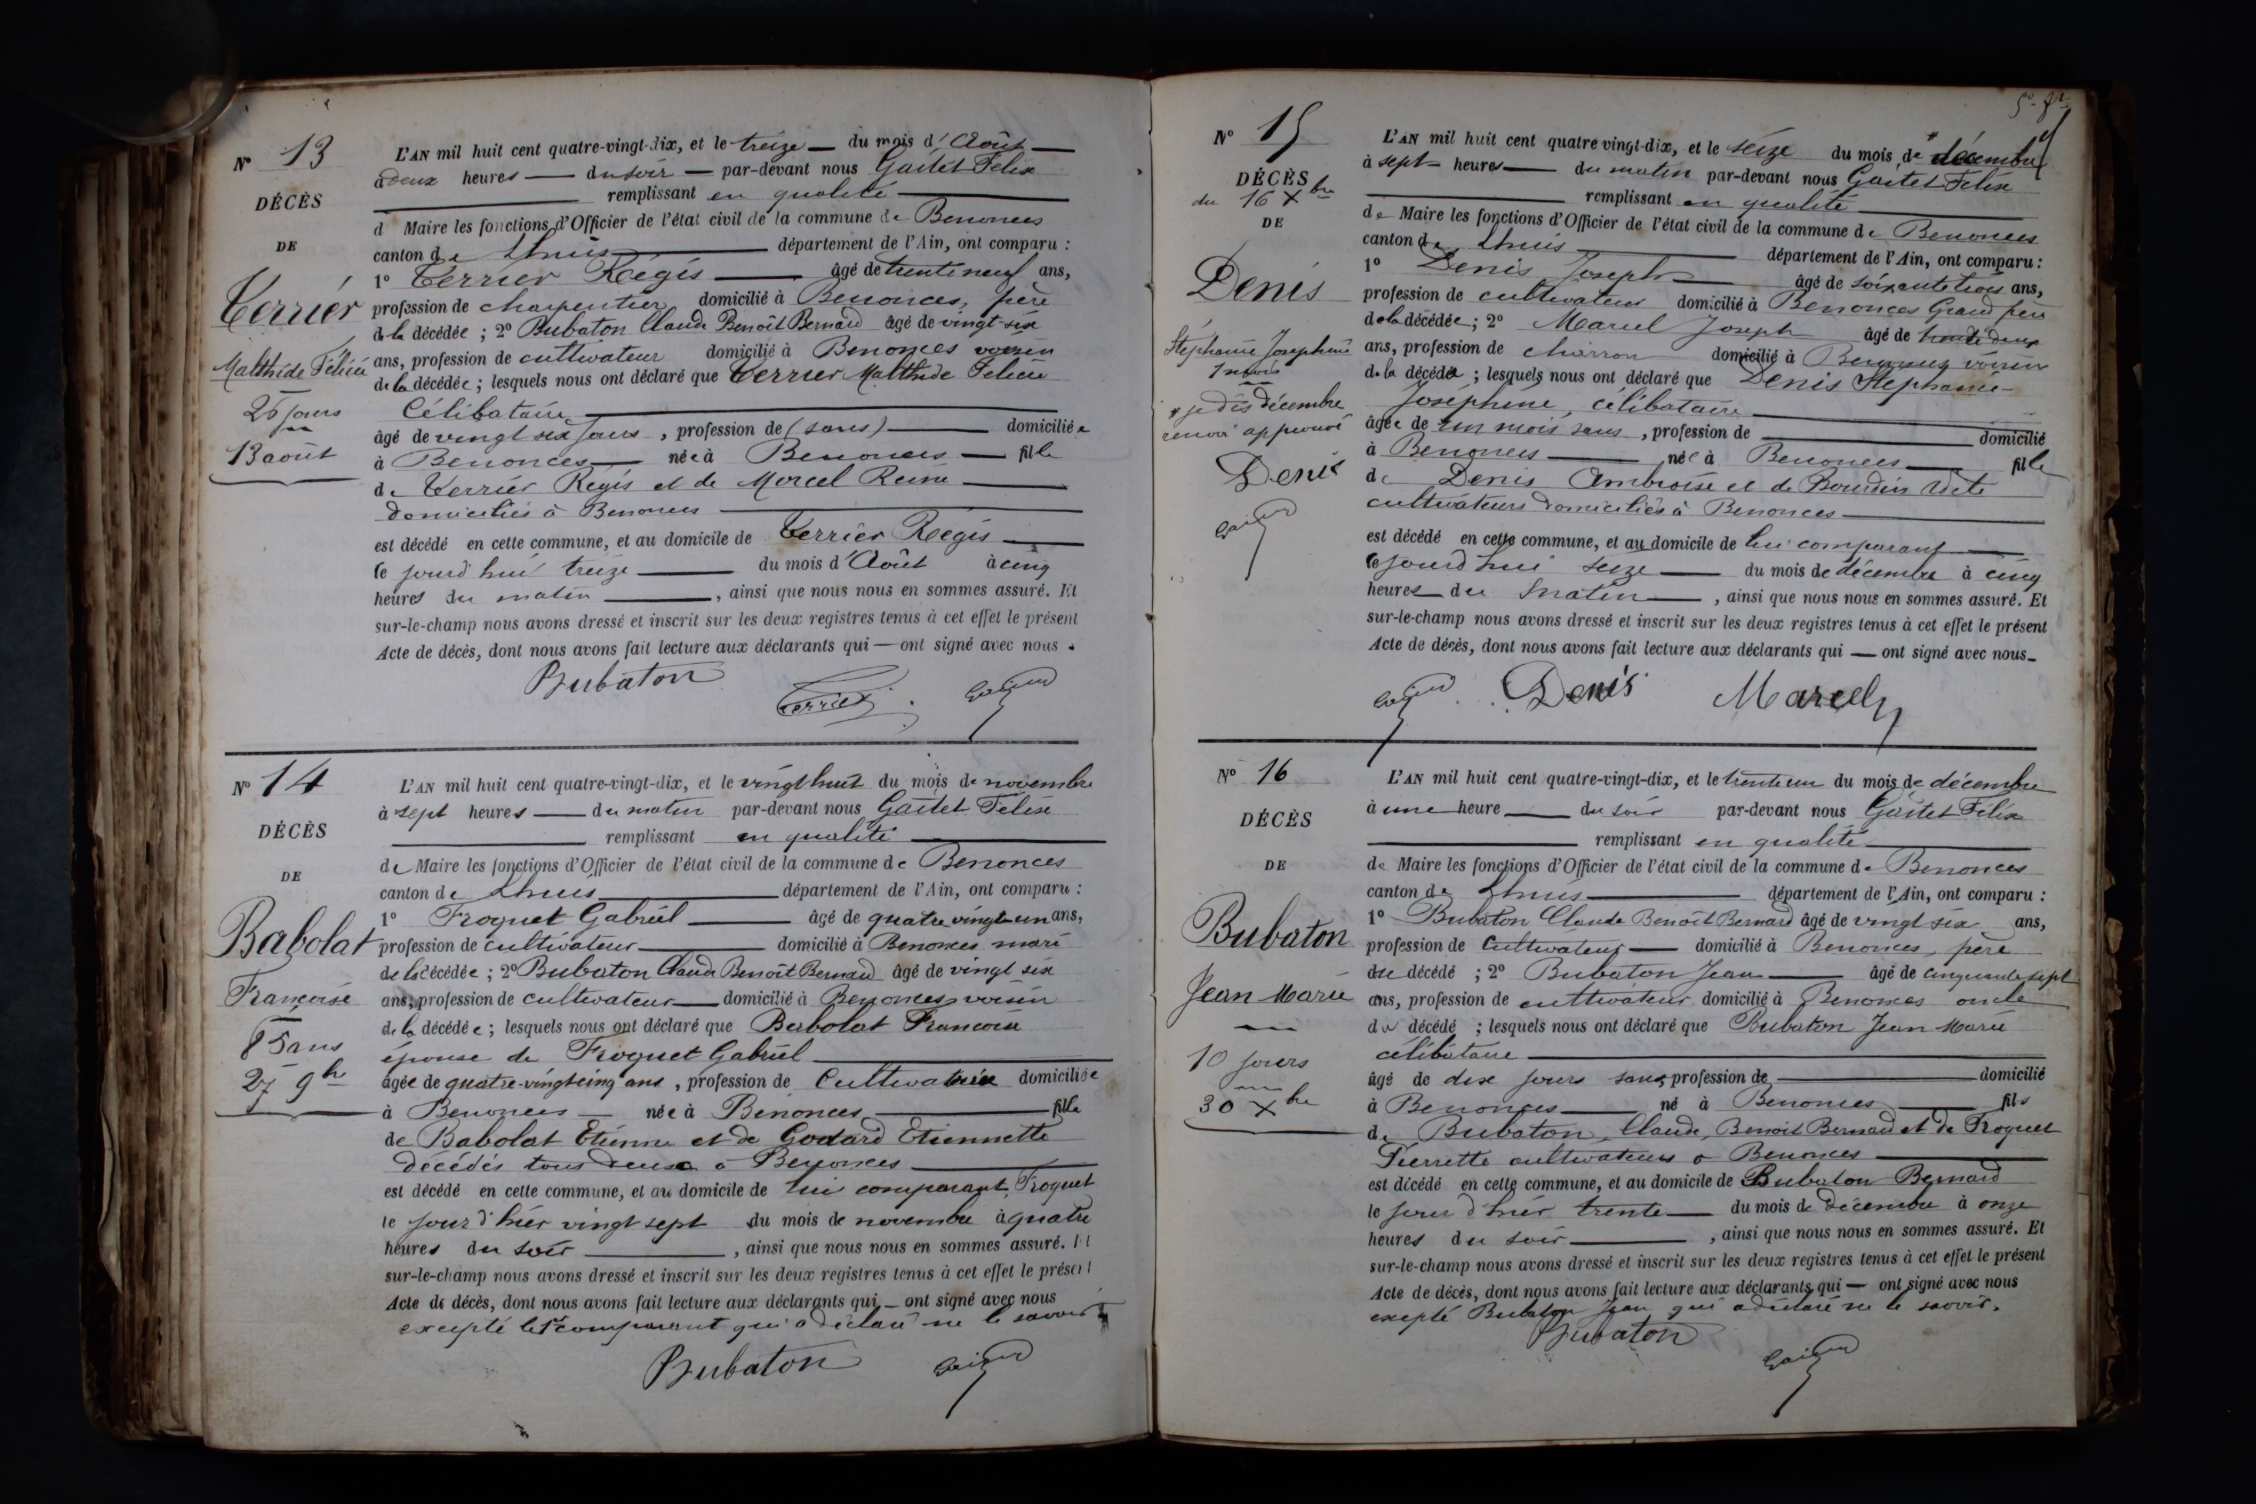 N° 13
DÉCÈS
DE
Terrier
Malthide Félicie
26 jours
13 août
L'AN mil huit cent quatre-vingt-dix, et le treize du mois d'Août
à deux heures du soir par-devant nous Gaitet Félix
remplissant en qualité
d Maire les fonctions d'Officier de l'état civil de la commune de Benonces
canton de Lhuis département de l'Ain, ont comparu :
1° Terrier Régis âgé de trente neuf ans,
profession de charpentier domicilié à Benonces, père
de la décédée ; 2° Bubaton Claude Benoît Bernard âgé de vingt-six
ans, profession de cultivateur domicilié à Benonces voisin
de la décédée ; lesquels nous ont déclaré que Terrier Malthide Félicie
Célibataire
âgé de vingt six jours, profession de (sans) domiciliée
à Benonces née à Benonces fille
de Terrier Régis et de Marcel Reine
domiciliés à Benonces
est décédé en cette commune, et au domicile de Terrier Régis
le jourd'hui treize du mois d'Août à cinq
heures du matin, ainsi que nous nous en sommes assuré. Et
sur-le-champ nous avons dressé et inscrit sur les deux registres tenus à cet effet le présent
Acte de décès, dont nous avons fait lecture aux déclarants qui — ont signé avec nous.
Bubaton Terrier
N° 14
DÉCÈS
DE
Babolat
Françoise
85 ans
27 9bre
L'AN mil huit cent quatre-vingt-dix, et le vingt huit du mois de novembre
à sept heures du matin par-devant nous Gaitet Félix
remplissant en qualité
de Maire les fonctions d'Officier de l'état civil de la commune de Benonces
canton de Lhuis département de l'Ain, ont comparu :
1° Froquet Gabriel âgé de quatre vingt un ans,
profession de cultivateur domicilié à Benonces mari
de la décédée ; 2° Bubaton Claude Benoît Bernard âgé de vingt six
ans, profession de cultivateur domicilié à Benonces voisin
de la décédée ; lesquels nous ont déclaré que Babolat Françoise
épouse de Froquet Gabriel
âgée de quatre-vingt cinq ans, profession de Cultivatrice domiciliée
à Benonces née à Benonces fille
de Babolat Etienne et de Godard Etiennette
décédés tous deux à Benonces
est décédé en cette commune, et au domicile de lui comparant, Froquet
le jour d'hier vingt sept du mois de novembre à quatre
heures du soir, ainsi que nous nous en sommes assuré. Et
sur-le-champ nous avons dressé et inscrit sur les deux registres tenus à cet effet le présent
Acte de décès, dont nous avons fait lecture aux déclarants qui — ont signé avec nous
excepté le 1er comparant qui a déclaré ne le savoir
Bubaton
N° 15
DÉCÈS
du 16 Xbre
DE
Denis
Stéphanie Joséphine
1 mois
* je dis décembre
renvoi approuvé
Denis
L'AN mil huit cent quatre vingt-dix, et le seize du mois de * décembre
à sept heures du matin par-devant nous Gaitet Félix
remplissant en qualité
de Maire les fonctions d'Officier de l'état civil de la commune de Benonces
canton de Lhuis département de l'Ain, ont comparu :
1° Denis Joseph âgé de soixante trois ans,
profession de cultivateur domicilié à Benonces Grand père
de la décédée ; 2° Marcel Joseph âgé de trente deux
ans, profession de charron domicilié à Benonces voisin
de la décédée ; lesquels nous ont déclaré que Denis Stéphanie
Joséphine, célibataire
âgée de un mois sans, profession de domicilié
à Benonces née à Benonces fille
de Denis Ambroise et de Bourdin Adèle
cultivateurs domiciliés à Benonces
est décédé en cette commune, et au domicile de lui comparant
le jourd'hui seize du mois de décembre à cinq
heures du matin, ainsi que nous nous en sommes assuré. Et
sur-le-champ nous avons dressé et inscrit sur les deux registres tenus à cet effet le présent
Acte de décès, dont nous avons fait lecture aux déclarants qui — ont signé avec nous
Denis Marcel
N° 16
DÉCÈS
DE
Bubaton
Jean Marie
10 jours
30 Xbre
L'AN mil huit cent quatre-vingt-dix, et le trente un du mois de décembre
à une heure du soir par-devant nous Gaitet Félix
remplissant en qualité
de Maire les fonctions d'Officier de l'état civil de la commune de Benonces
canton de Lhuis département de l'Ain, ont comparu :
1° Bubaton Claude Benoît Bernard âgé de vingt six ans,
profession de cultivateur domicilié à Benonces, père
du décédé ; 2° Bubaton Jean âgé de cinquante sept
ans, profession de cultivateur domicilié à Benonces oncle
du décédé ; lesquels nous ont déclaré que Bubaton Jean Marie
célibataire
âgé de dix jours sans profession de domicilié
à Benonces né à Benonces fils
de Bubaton, Claude, Benoit Bernard et de Froquet
Pierrette cultivateurs à Benonces
est décédé en cette commune, et au domicile de Bubaton Bernard
le jour d'hier trente du mois de Décembre à onze
heures du soir, ainsi que nous nous en sommes assuré. Et
sur-le-champ nous avons dressé et inscrit sur les deux registres tenus à cet effet le présent
Acte de décès, dont nous avons fait lecture aux déclarants qui — ont signé avec nous
excepté Bubaton Jean qui a déclaré ne le savoir.
Bubaton